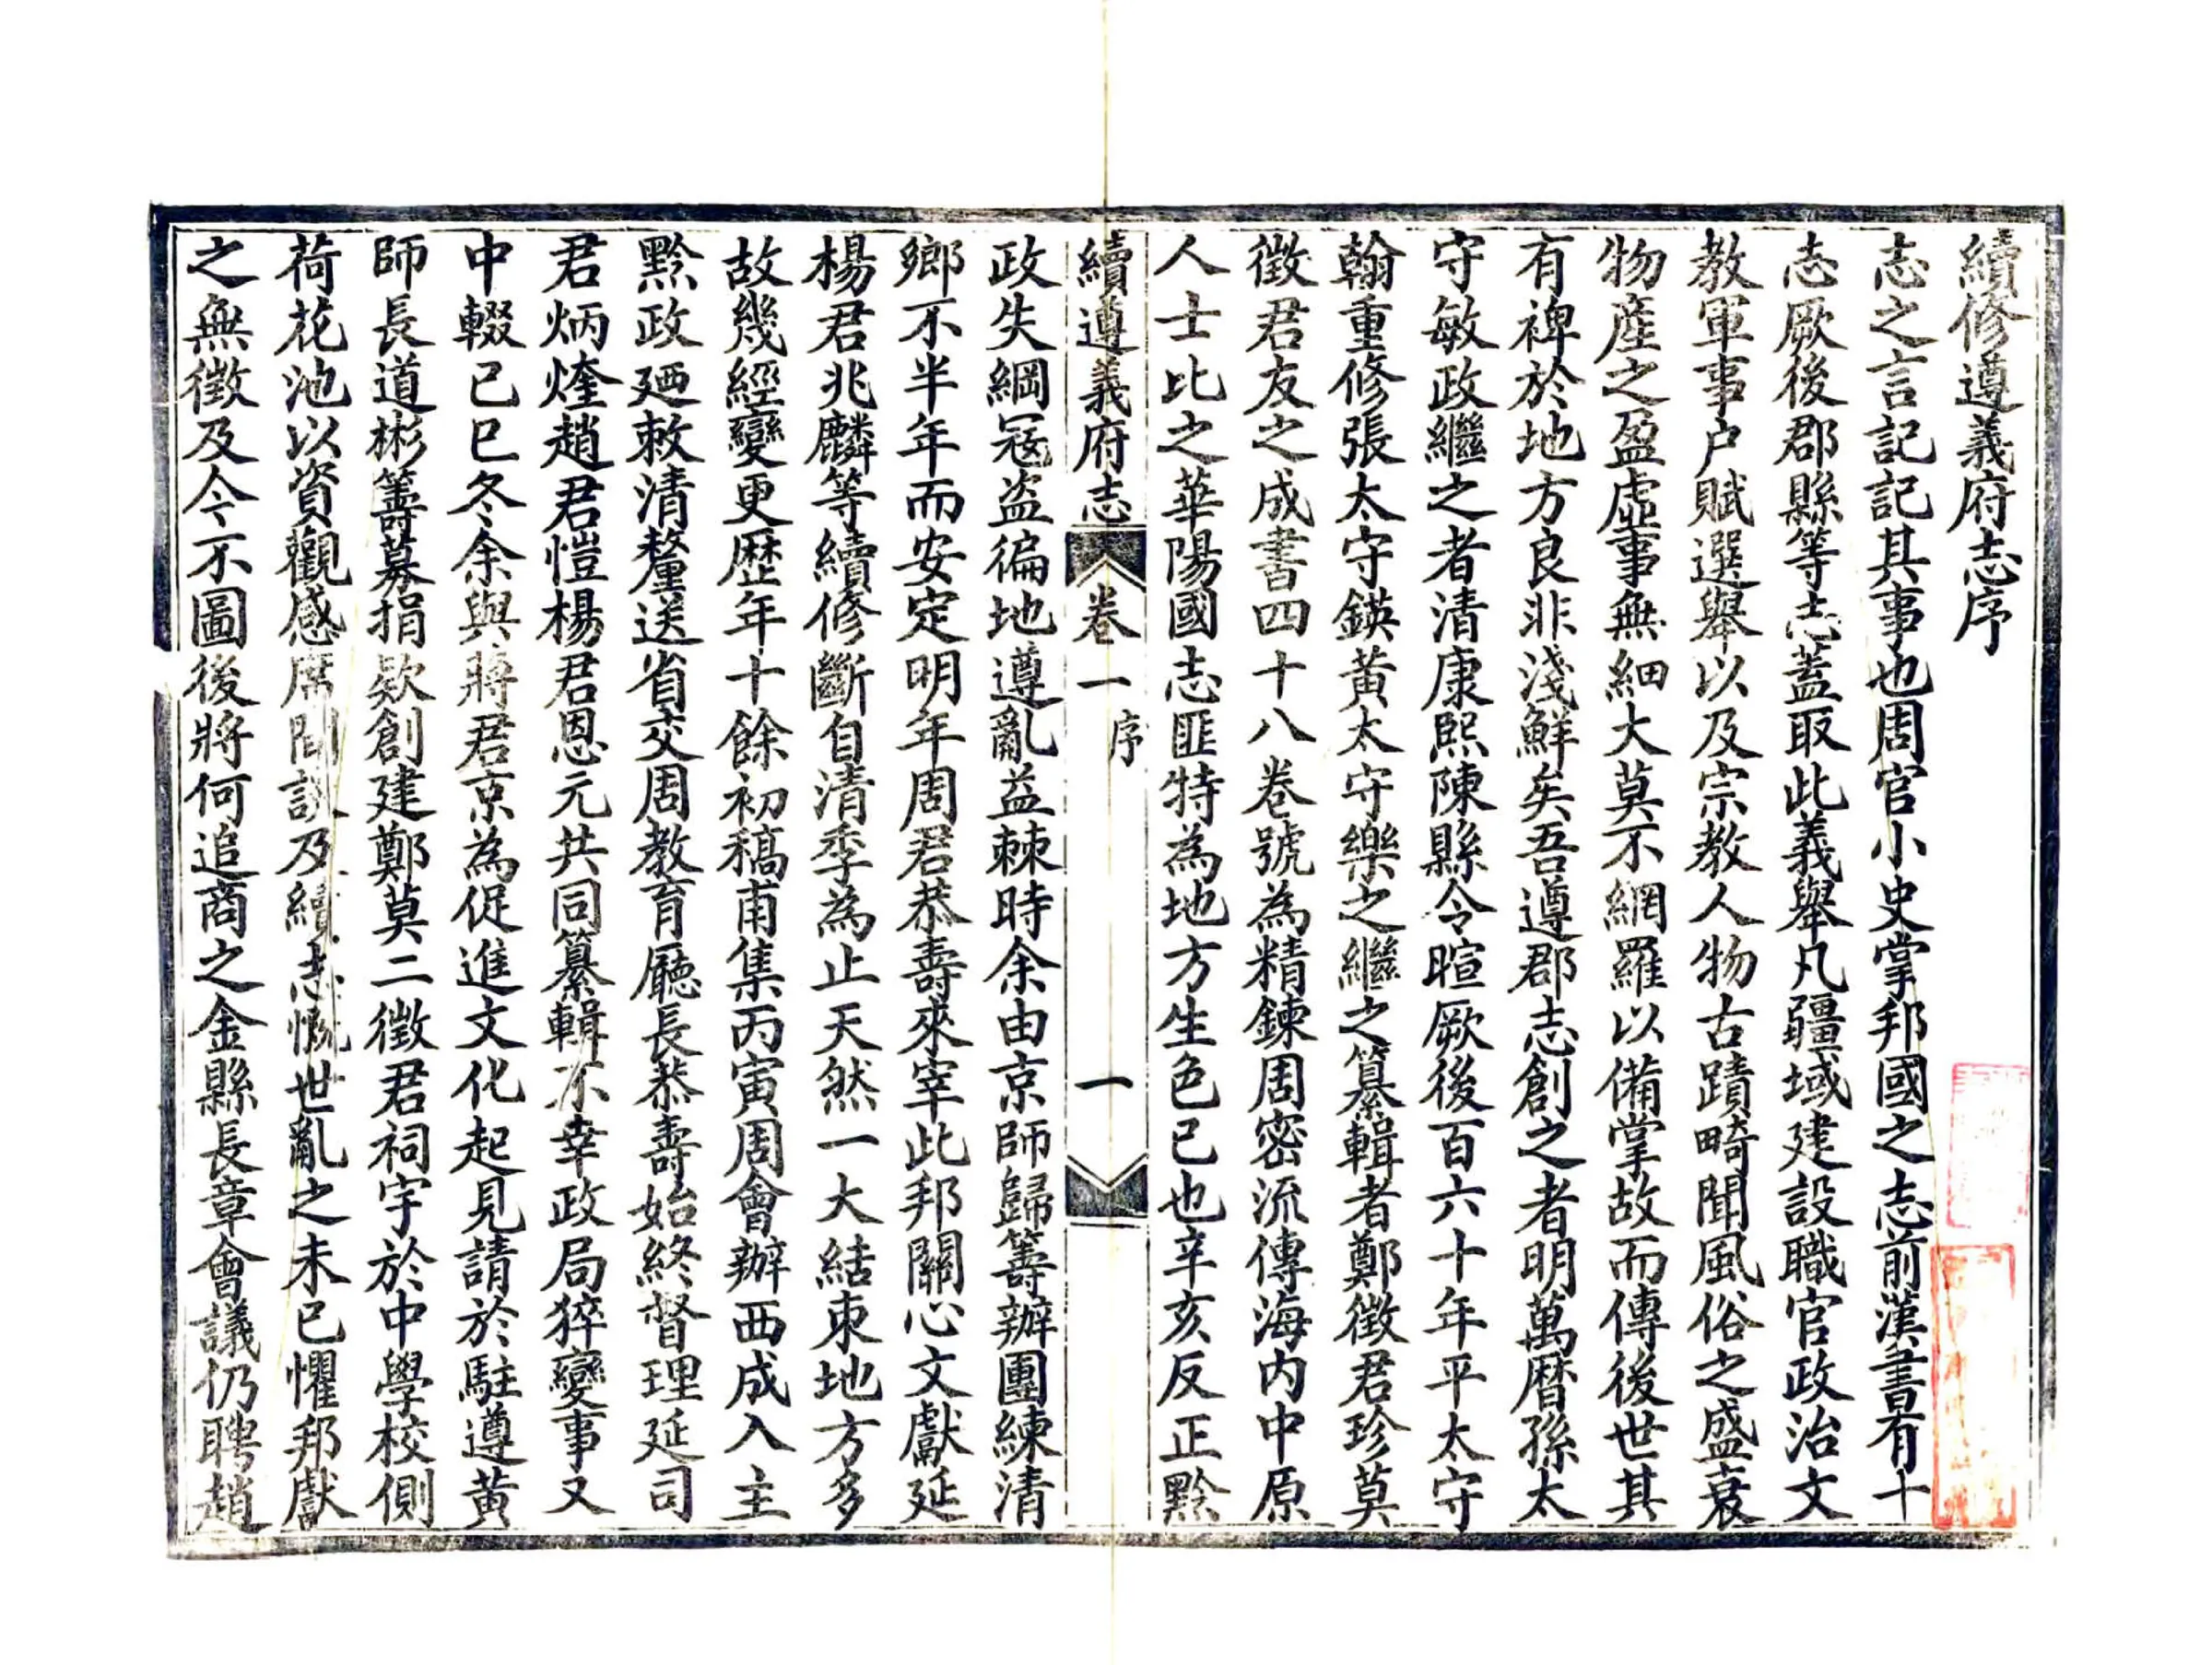 續修遵義府志序
志之言記記其事也周官小史掌邦國之志前漢書有十
志厥後郡縣等志蓋取此義舉凡疆域建設職官政治文
教軍事户賦選舉以及宗教人物古蹟畸聞風俗之盛衰
物產之盈虛事無細大莫不網羅以備掌故而傳後世其
有裨於地方良非淺鮮矣吾遵郡志創之者明萬曆孫太
守敏政繼之者清康熙陳縣令暄厥後百六十年平太守
翰重修張太守鍈黃太守樂之繼之纂輯者鄭徵君珍莫
徵君友之成書四十八卷號為精鍊周密流傳海内中原
人士比之華陽國志匪特為地方生色已也辛亥反正黔
續遵義府志 卷一 序 一
政失綱寇盗徧地遵亂益棘時余由京師歸籌辦團練清
鄉不半年而安定明年周君恭壽來宰此邦關心文獻延
楊君兆麟等續修斷自清季為止天然一大結束地方多
故幾經變更歷年十餘初稿甫集丙寅周會辦西成入主
黔政廼敕清釐送省交周教育廳長恭壽始終督理延司
君炳煃趙君愷楊君恩元共同纂輯不幸政局猝變事又
中輟已巳冬余與蔣君京為促進文化起見請於駐遵黃
師長道彬籌募捐欵創建鄭莫二徵君祠宇於中學校側
荷花池以資觀感席間談及續志慨世亂之未已懼邦獻
之無徵及今不圖後將何追商之金縣長章會議仍聘趙